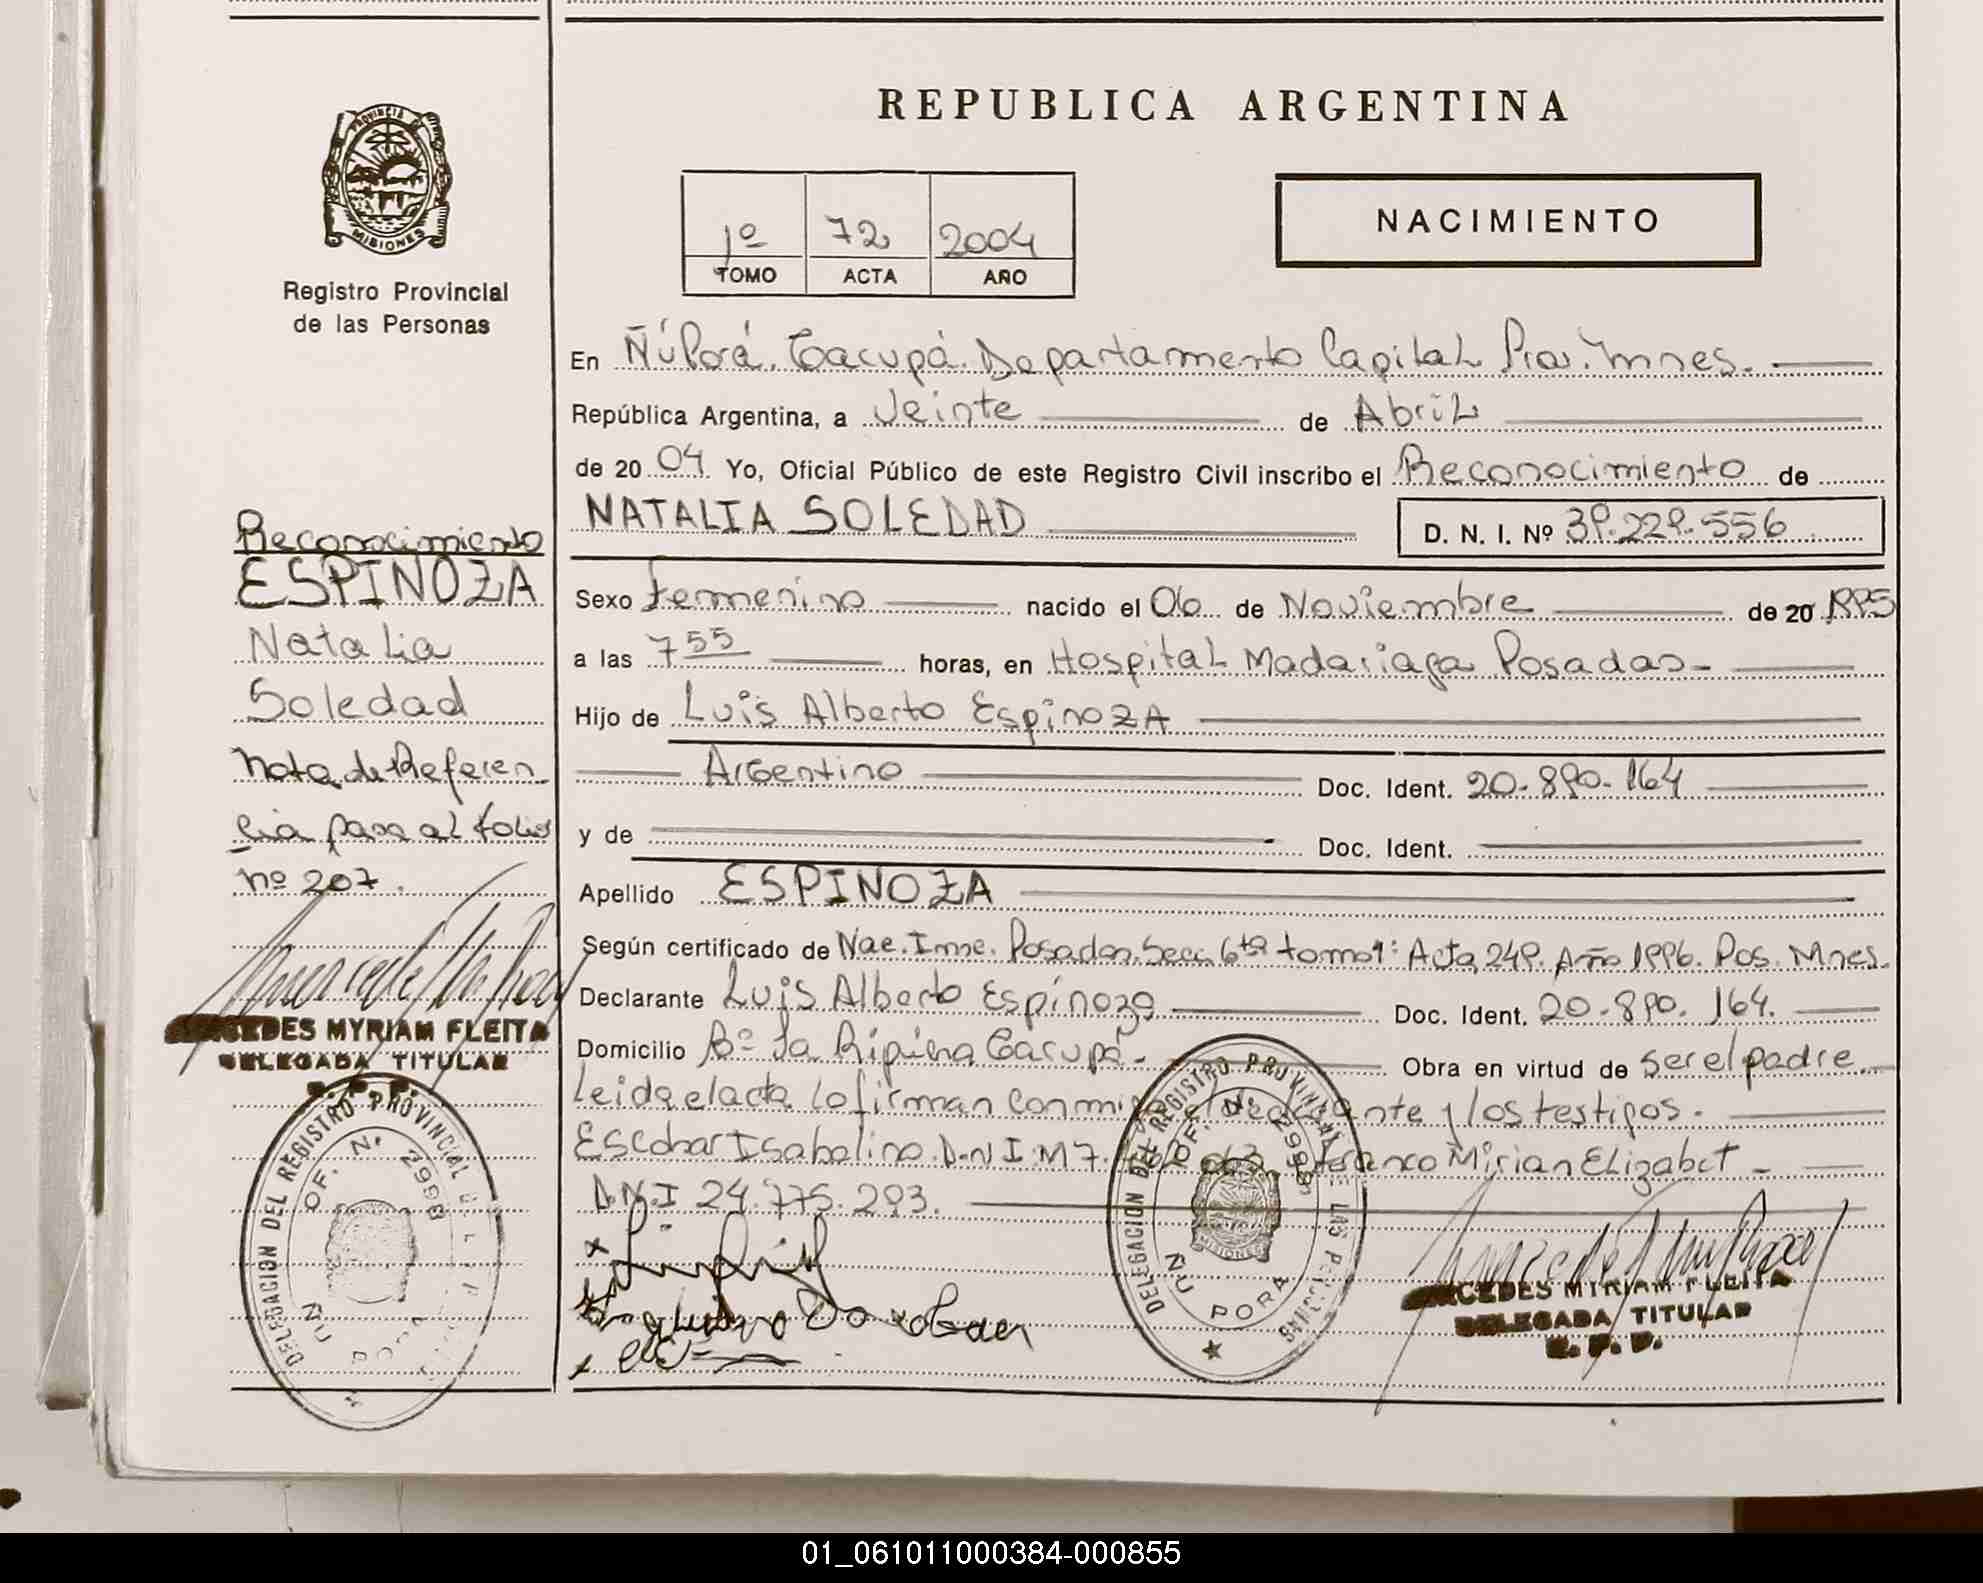 REPUBLICA ARGENTINA
PROVINCIA DE
MISIONES
Registro Provincial
de las Personas
1º 72 2004
TOMO ACTA AÑO
NACIMIENTO
En Ñú Porá. Garupá. Departamento Capital Prov. Mnes.
República Argentina, a Veinte de Abril
de 20 04 Yo, Oficial Público de este Registro Civil inscribo el Reconocimiento de
NATALIA SOLEDAD D. N. I. Nº 39.229.556
Sexo femenino nacido el 06 de Noviembre de 20 1995
a las 7 55 horas, en Hospital Madariaga Posadas-
Hijo de Luis Alberto EspinoZA
Argentino Doc. Ident. 20.890.164
y de Doc. Ident.
Apellido ESPINOZA
Según certificado de Nac. Posadas. Secc 6ta tomo 1: Acta 249. Año 1996. Pos. Mnes.
Declarante Luis Alberto Espinoza Doc. Ident. 20.890.164.
Domicilio Bº Garupá- Obra en virtud de ser el padre
Leida el acta lo firman conmigo el declarante y los testigos.
Escobar Isabelino D.N.I.M 7. Franco Mirian Elizabet -
D.N.I 24.775.293.
Reconocimiento
ESPINOZA
Natalia
Soledad
Nota de Referen
cia pasa al folio
nº 207.
MERCEDES MYRIAM FLEITA
DELEGADA TITULAR
R. P. P.
DELEGACION DEL REGISTRO PROVINCIAL DE LAS
OF. Nº 2998
ÑU PORA
DELEGACION DEL REGISTRO PROVINCIAL DE LAS PERSONAS
OF. Nº 2998
MISIONES
ÑU PORA
MERCEDES MYRIAM FLEITA
DELEGADA TITULAR
R. P. P.
01_061011000384-000855